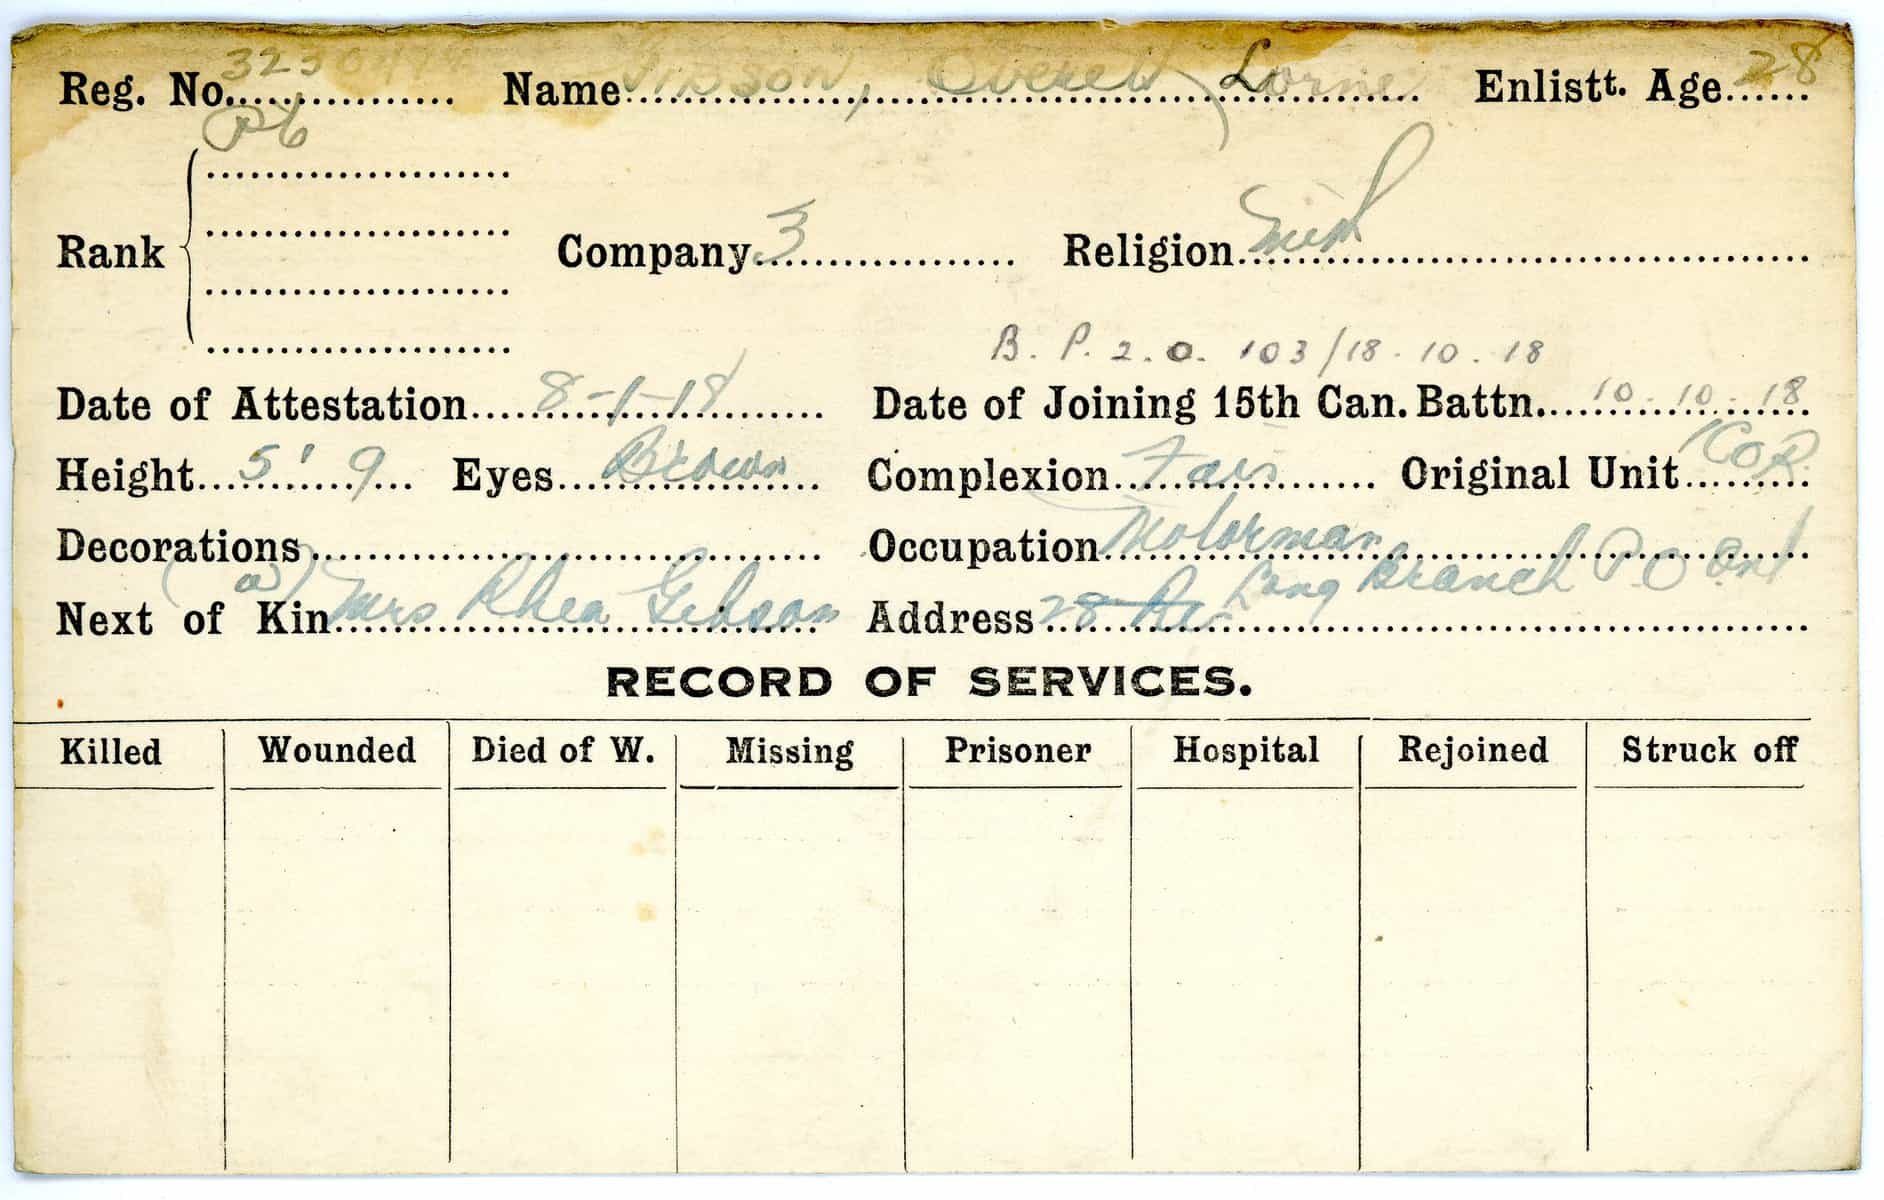 Reg. No. Name Gibson, Everett Lorne Enlistt. Age 28
Rank Pte
Company 3 Religion Meth
B. P. 2. O. 103/18.10.18
Date of Attestation 8-1-18 Date of Joining 15th Can. Battn. 10.10.18
Height 5' 9 Eyes Brown Complexion Fair Original Unit 1 COR.
Decorations Occupation Motorman
Next of Kin (a) Mrs Rhea Gibson Address 28 Long Branch P.O Ont
RECORD OF SERVICES.
Killed Wounded Died of W. Missing Prisoner Hospital Rejoined Struck off